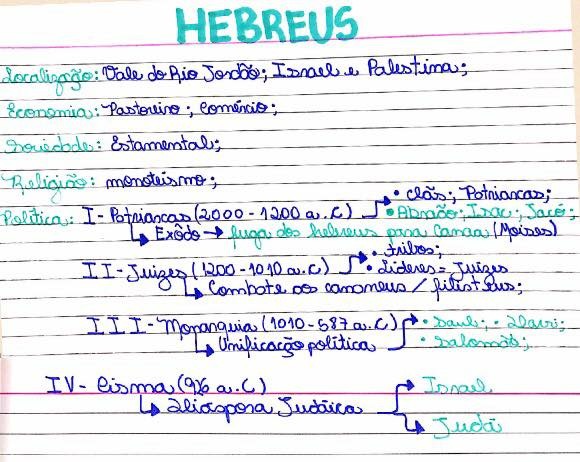 HEBREUS
Localização: Vale do Rio Jordão; Israel e Palestina;
Economia: Pastoreiro; Comércio;
Sociedade: Estamental;
Religião: monoteísmo;
Política: I - Patriarcas (2000 - 1200 a.C) • Clãs; Patriarcas;
• Abraão; Isac; Jacó;
Exôdo → fuga dos hebreus para Canaa (Moises)
II - Juizes (1200 - 1010 a.C) • tribos;
• Líderes = Juizes
Combate aos cananeus / filisteus;
III - Monarquia (1010 - 587 a.C) • Saul; • Davi;
Unificação política • Salomão;
IV - Cisma (926 a.C)
Diáspora Judáica Israel
Judá